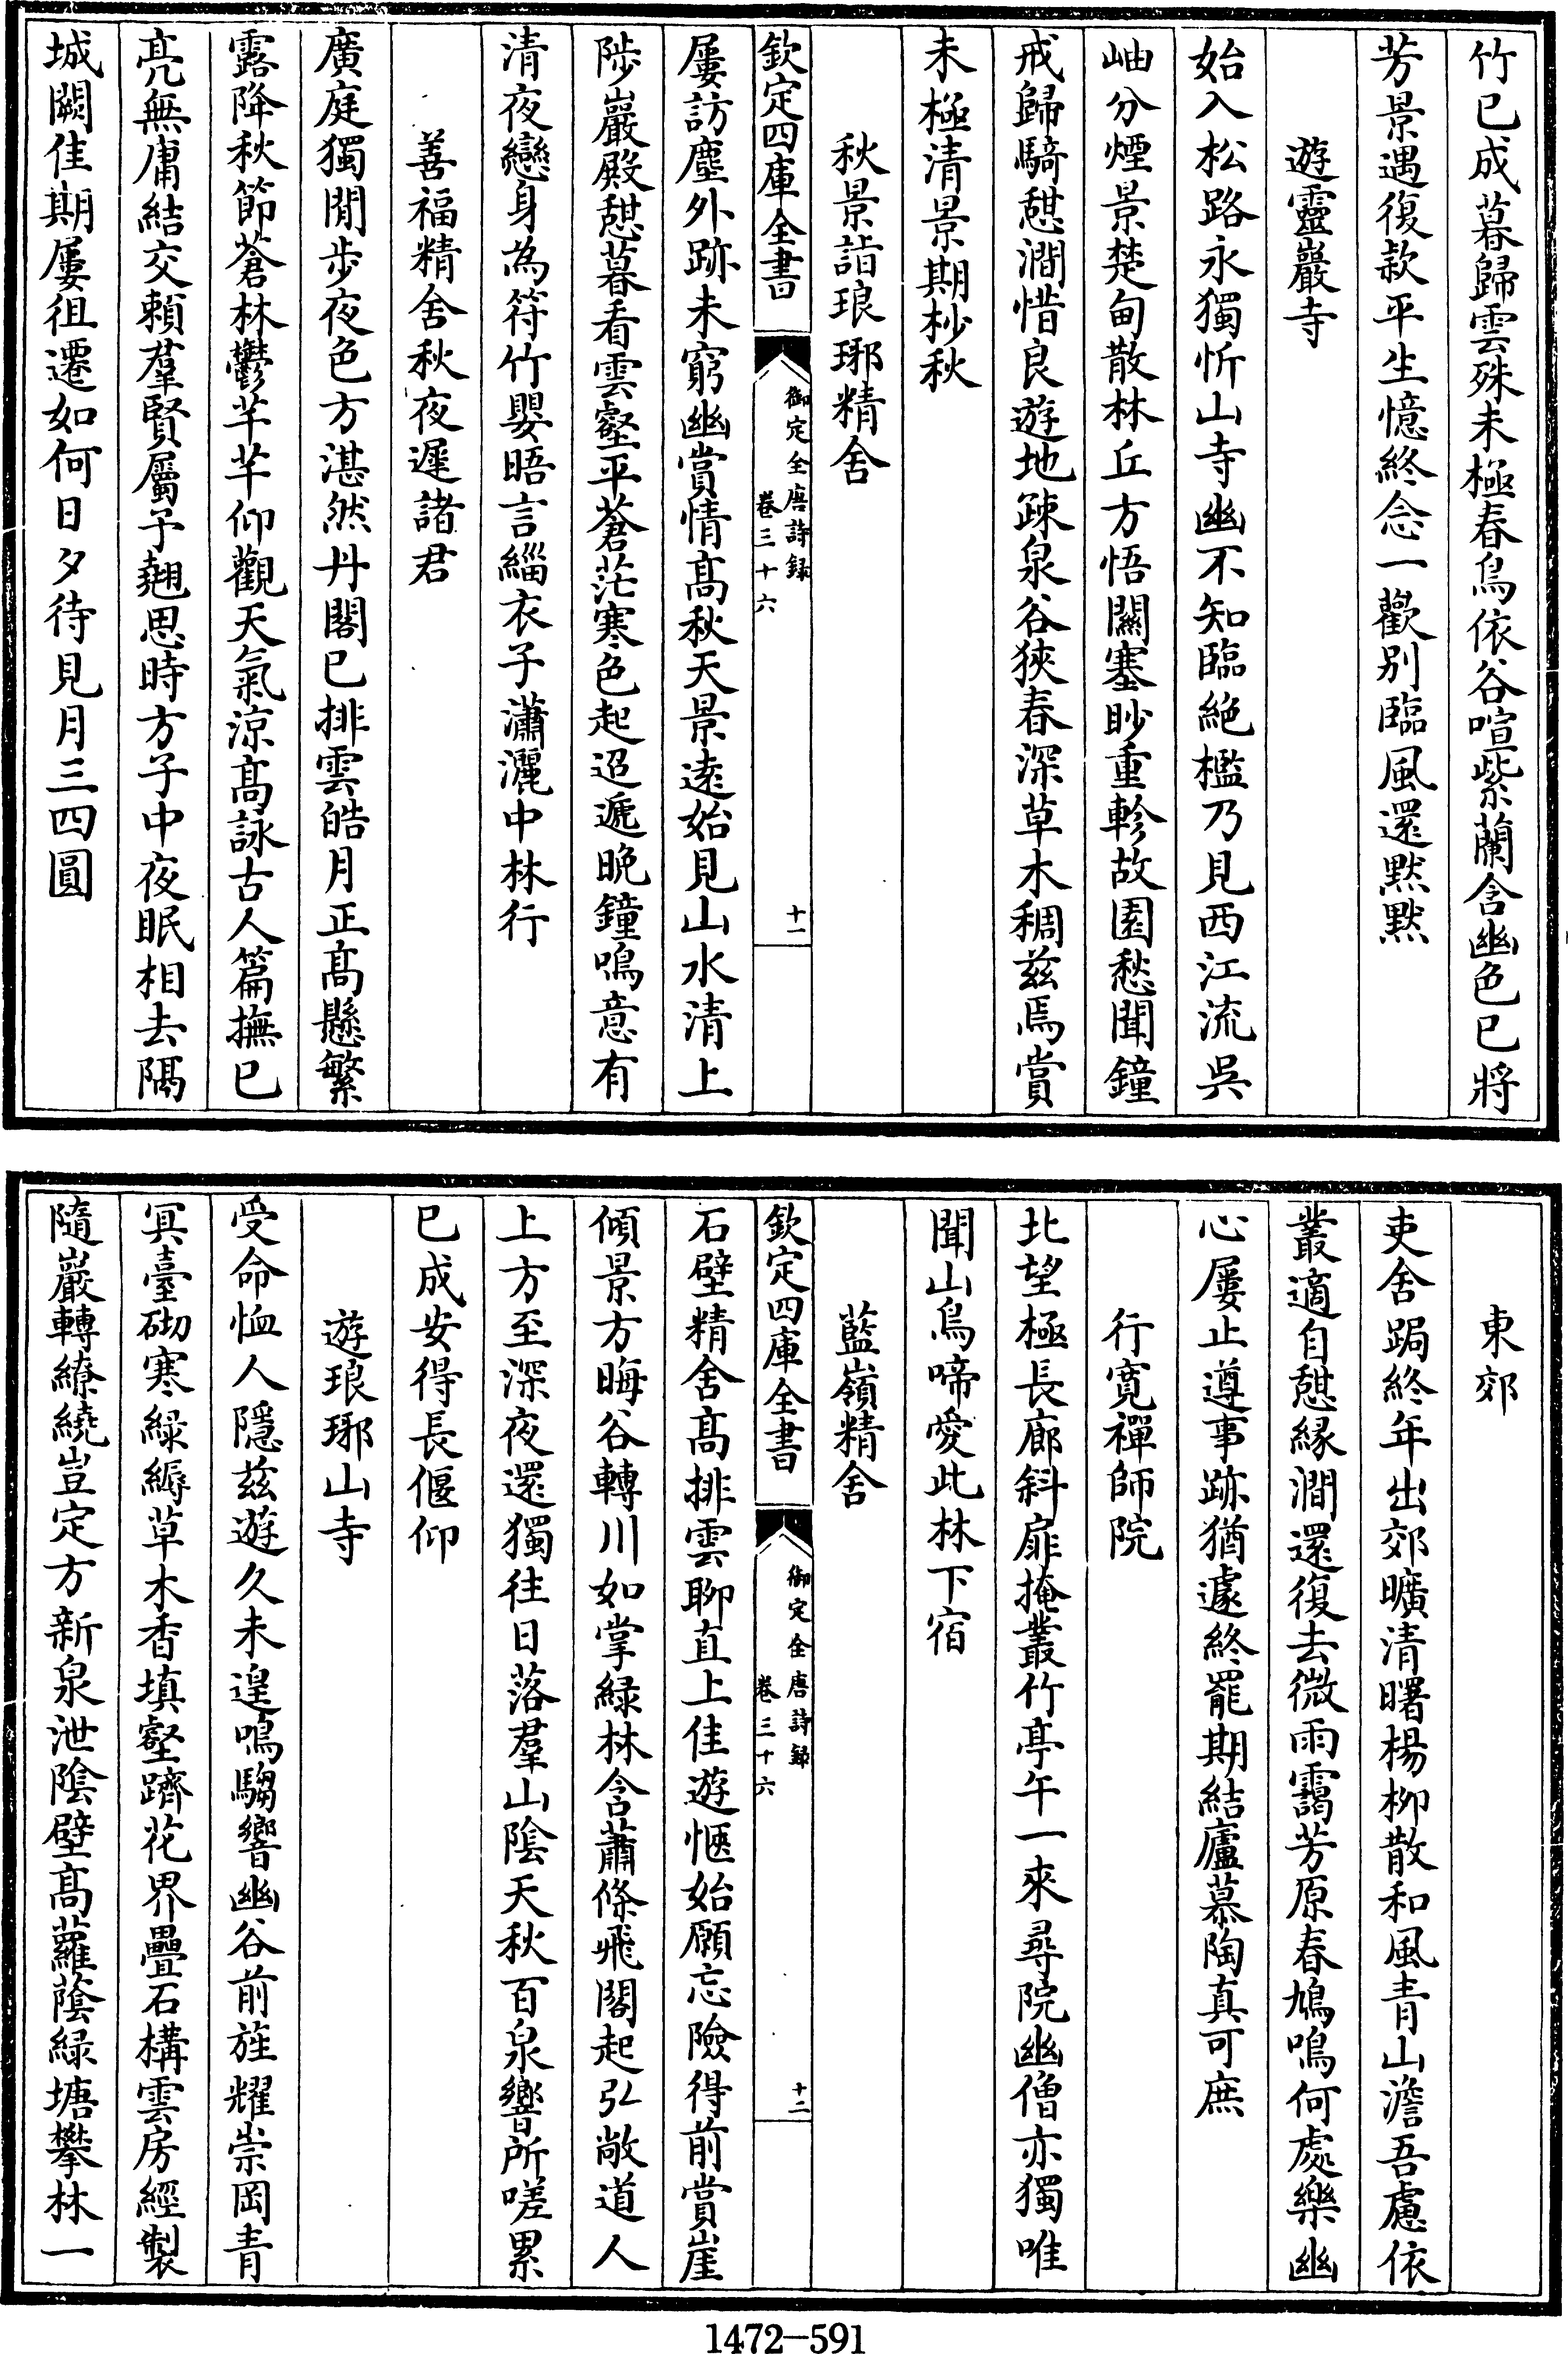 竹已成暮歸雲殊未極春鳥依谷喧紫蘭含幽色已將
芳景遇復款平生憶終念一歡别臨風還黙黙
遊靈巖寺
始入松路永獨忻山寺幽不知臨絶檻乃見西江流吳
岫分煙景楚甸散林丘方悟關塞眇重軫故園愁聞鐘
戒歸騎憇澗惜良遊地踈泉谷狹春深草木稠兹焉賞
未極清景期杪秋
秋景詣琅琊精舍
欽定四庫全書
御定全唐詩録
卷三十六
十一
屢訪塵外跡未窮幽賞情髙秋天景逺始見山水清上
陟巖殿憇暮看雲壑平蒼茫寒色起迢遞晚鐘鳴意有
清夜戀身為符竹嬰晤言緇衣子瀟灑中林行
善福精舍秋夜遲諸君
廣庭獨閒步夜色方湛然丹閣已排雲皓月正髙懸繁
露降秋節蒼林鬱芊芊仰觀天氣涼髙詠古人篇撫已
亮無庸結交賴羣賢屬予翹思時方子中夜眠相去隅
城闕佳期屢徂遷如何日夕待見月三四圓
東郊
吏舍跼終年出郊曠清曙楊柳散和風青山澹吾慮依
叢適自憇縁澗還復去微雨靄芳原春鳩鳴何處樂幽
心屢止遵事跡猶遽終罷期結廬慕陶真可庶
行寛禪師院
北望極長廊斜扉掩叢竹亭午一來尋院幽僧亦獨唯
聞山鳥啼愛此林下宿
藍嶺精舍
欽定四庫全書
御定全唐詩録
卷三十六
十二
石壁精舍髙排雲聊直上佳遊愜始願忘險得前賞崖
傾景方晦谷轉川如掌緑林含蕭條飛閣起弘敞道人
上方至深夜還獨往日落羣山陰天秋百泉響所嗟累
已成安得長偃仰
遊琅琊山寺
受命恤人隱兹遊久未遑鳴騶響幽谷前旌耀崇岡青
冥臺砌寒緑縟草木香填壑躋花界疊石構雲房經製
隨巖轉繚繞豈定方新泉泄陰壁髙蘿蔭緑塘攀林一
1472—591